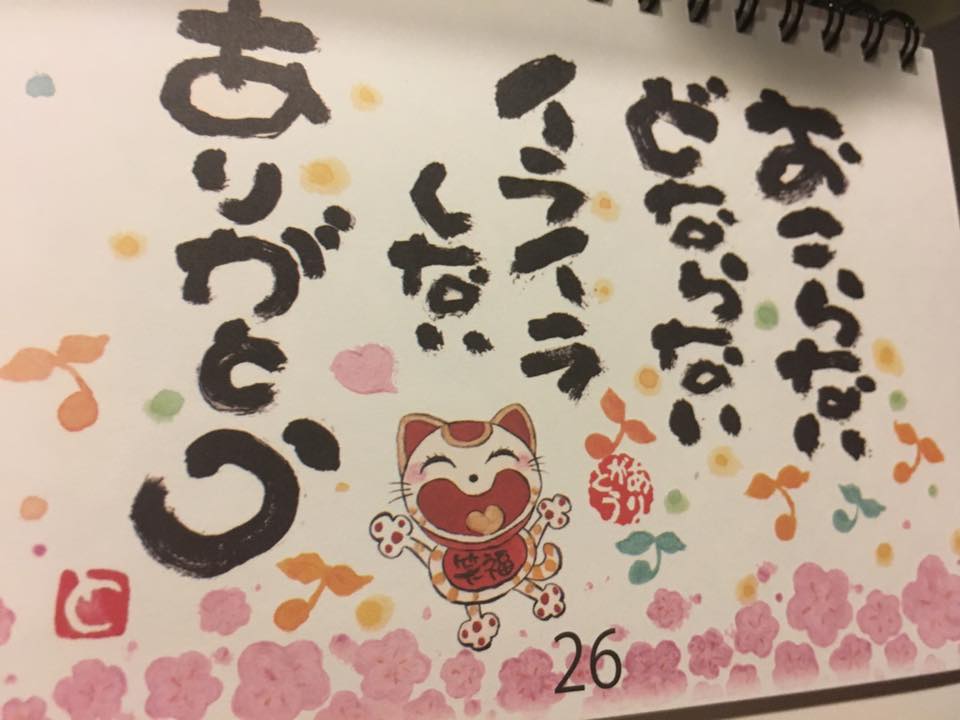 おこらない
どならない
イライラ
しない
ありがとう
ありがとう
笑福
26